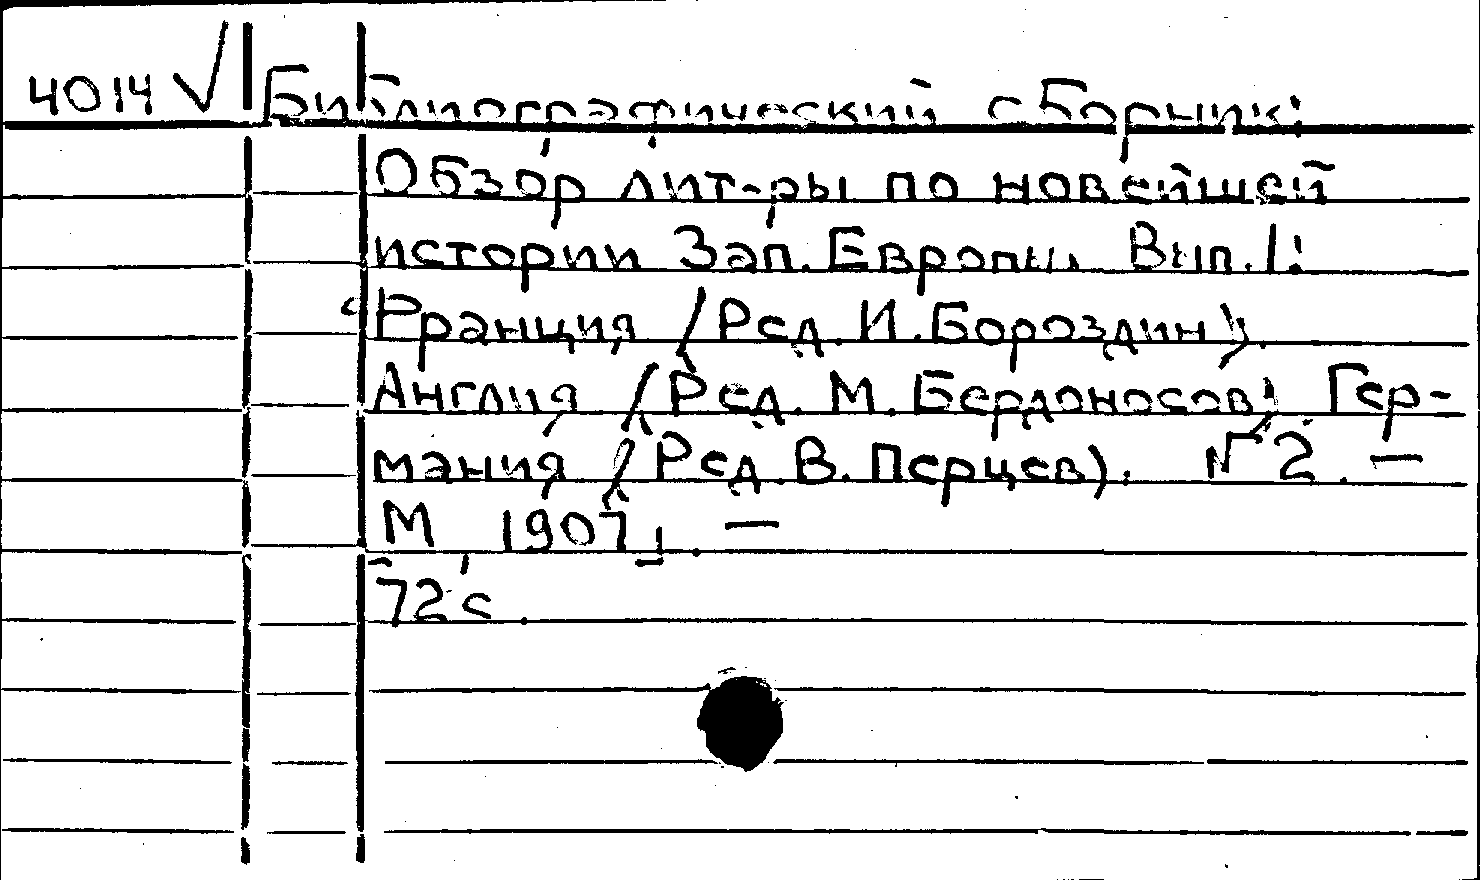 4014 √ Библиографический сборник:
Обзор лит-ры по новейшей
истории Зап. Европы. Вып. 1:
Франция /Ред. И. Бороздин).
Англия /Ред. М. Бердоносов) Гер-
мания /Ред. В. Перцев). 2. —
М, 1907. —
72 с.